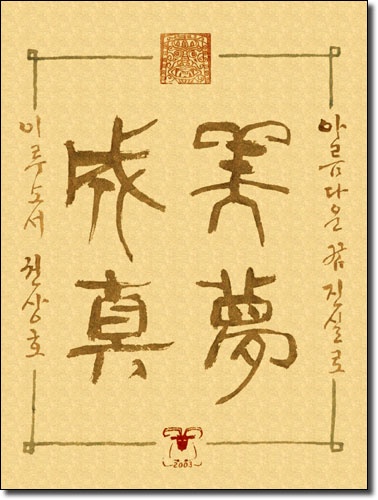 아름다운 꿈 진실로
美夢
成真
이루소서 권상호
2003